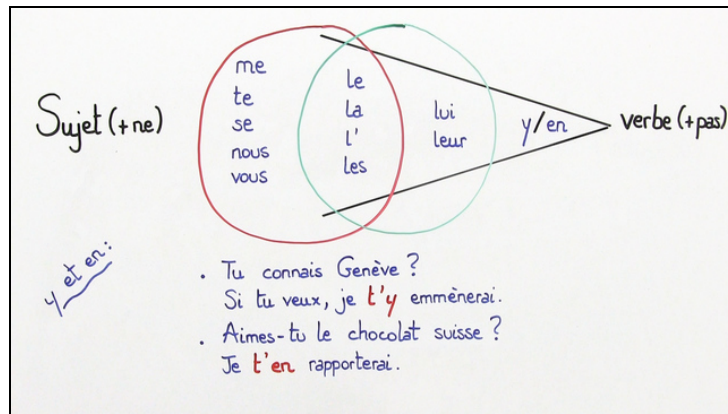 Sujet (+ ne)
me
te
se
nous
vous
le
la
l'
les
lui
leur
y/en
verbe (+ pas)
y et en :
. Tu connais Genève ?
Si tu veux, je t'y emmènerai.
. Aimes-tu le chocolat suisse ?
Je t'en rapporterai.